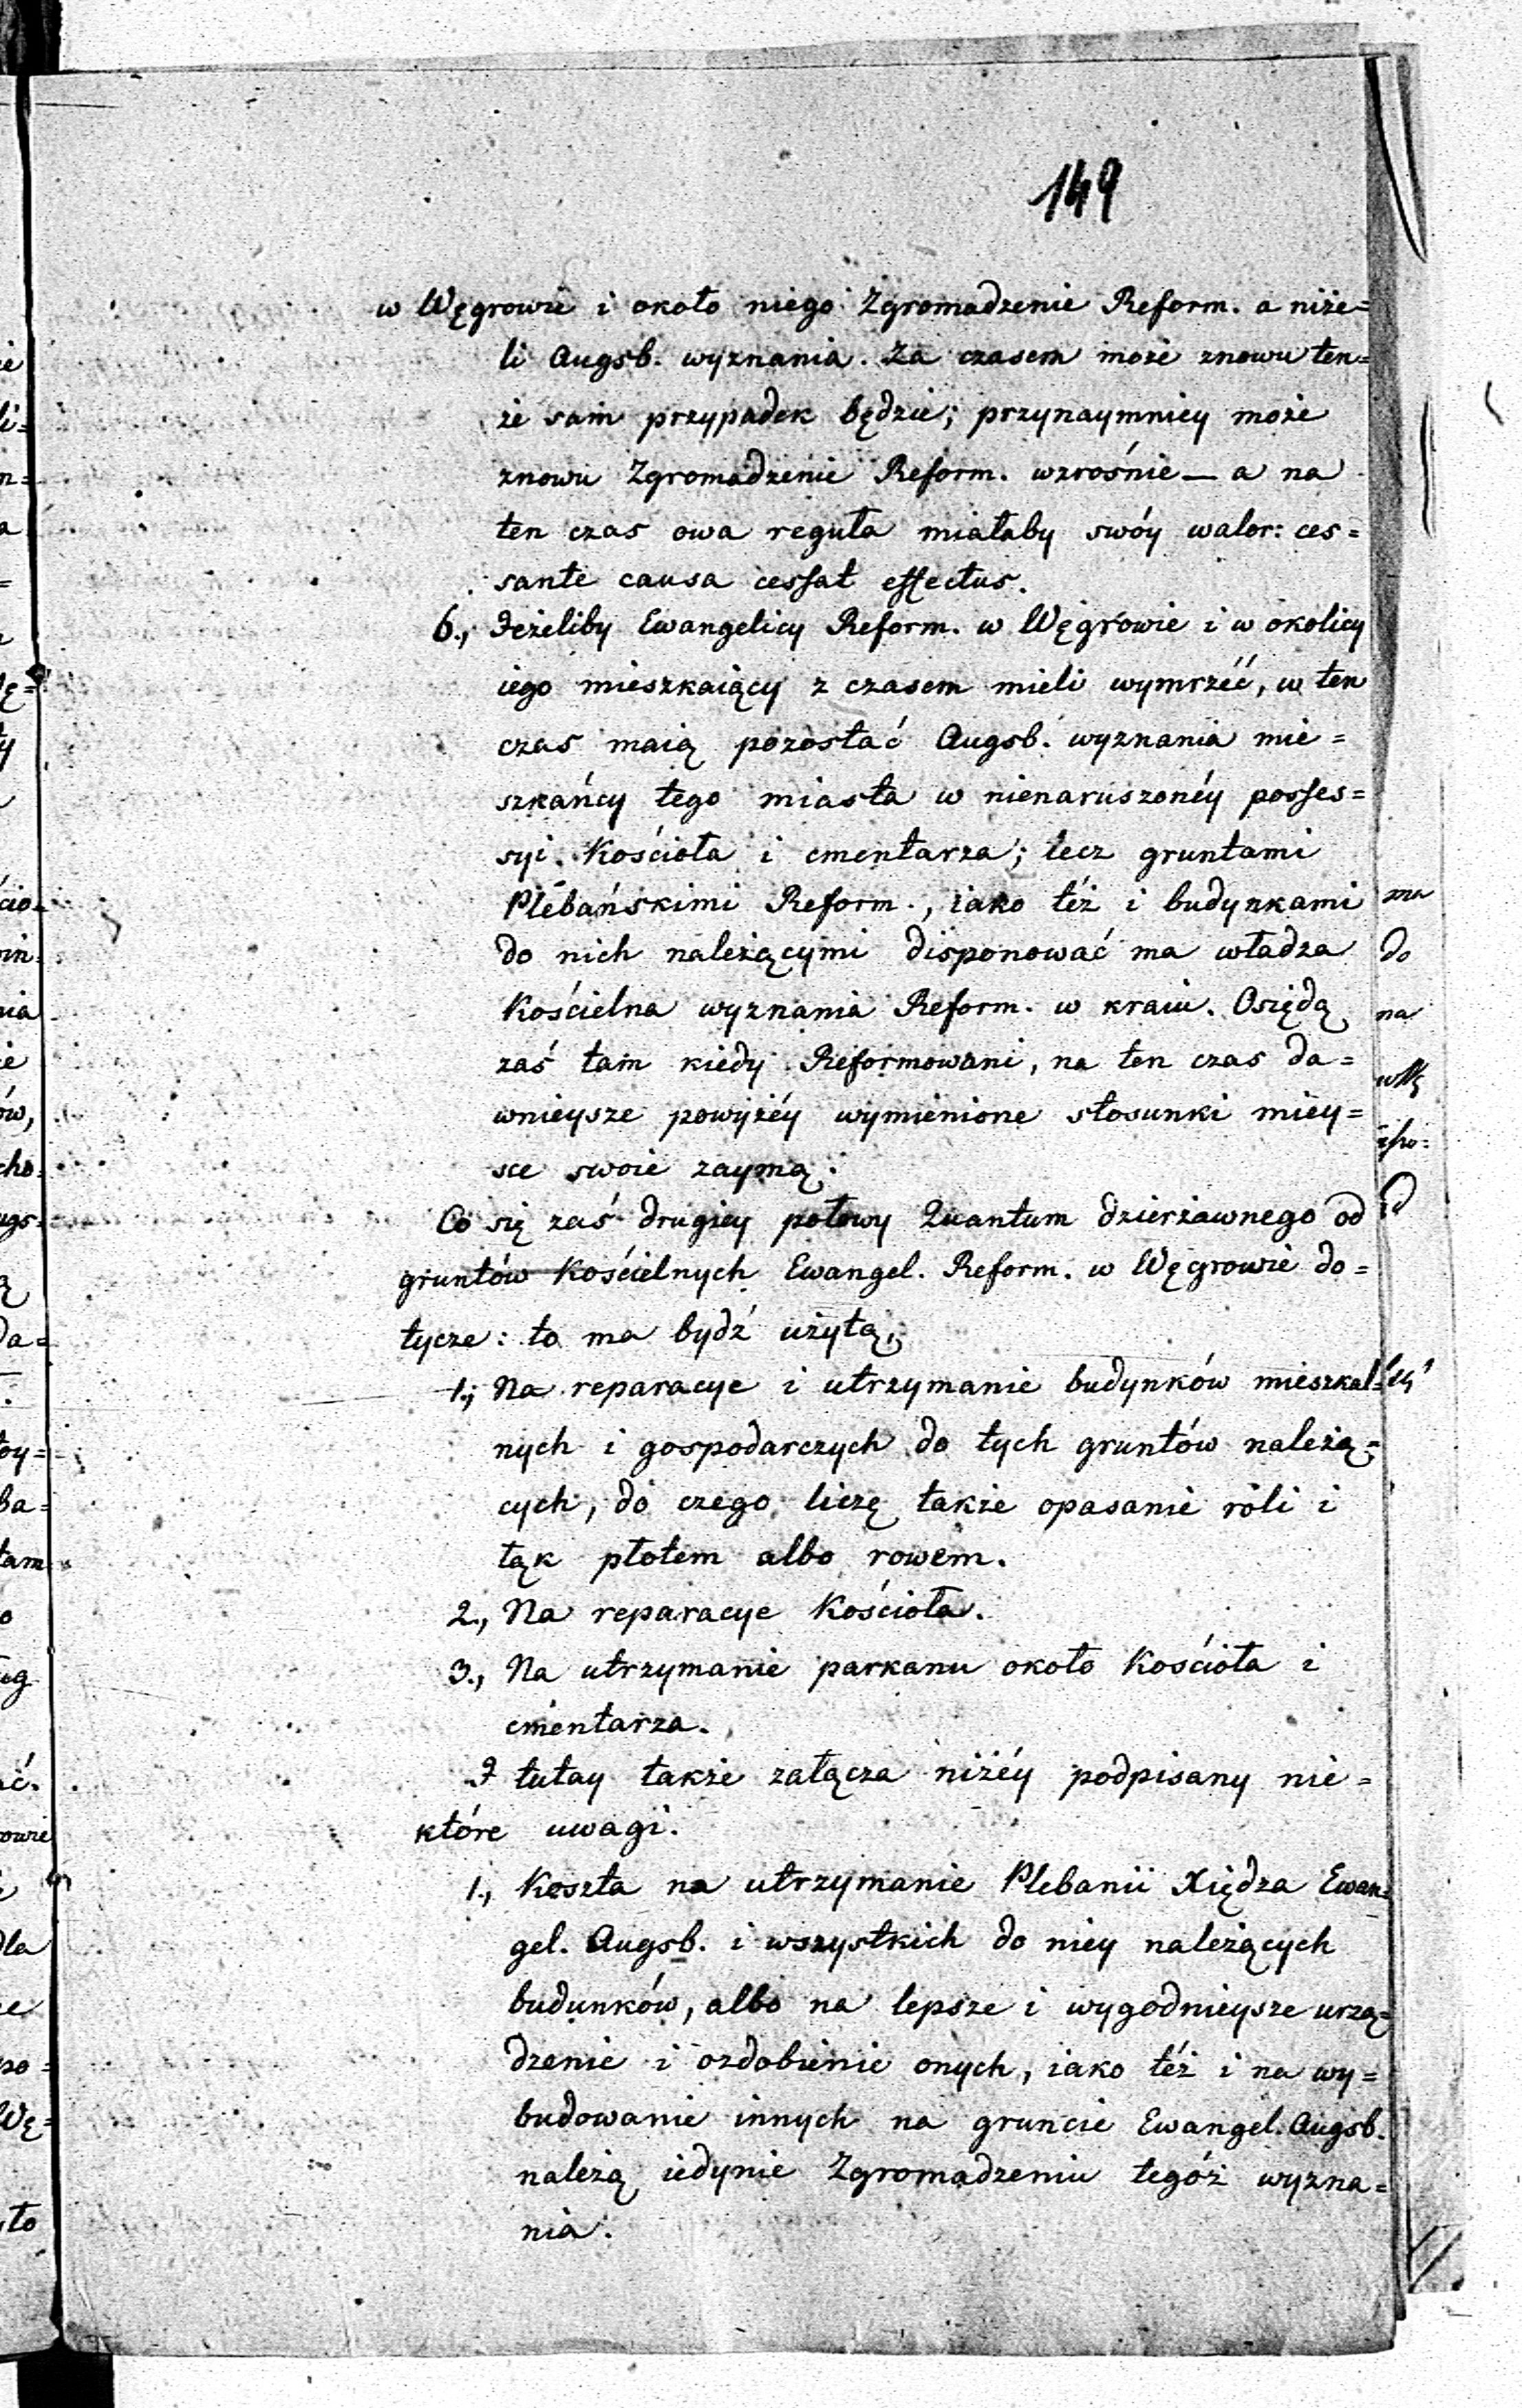 149
w Węgrowie i około niego Zgromadzenie Reform. a niże=
li Augsb. wyznania. Za czasem może znowu ten=
że sam przypadek będzie; przynaymniey może
znowu Zgromadzenie Reform. wzrośnie — a na
ten czas owa reguła miałaby swóy walor: ces=
sante causa cessat effectus.
6., Jeżeliby Ewangelicy Reform. w Węgrowie i w okolicy
iego mieszkaiący z czasem mieli wymrzéć, w ten
czas maią pozostać Augsb. wyznania mie=
szkańcy tego miasta w nienaruszonéy posses=
syi Kościoła i cmentarza; lecz gruntami
Plebańskimi Reform., iako téż i budynkami
do nich należącymi disponować ma władza
Kościelna wyznania Reform. w kraiu. Osiędą
zaś tam kiedy Reformowani, na ten czas da=
wnieysze powyżéy wymienione stosunki miey=
sce swoie zaymą.
Co się zaś drugiey połowy Quantum dzierżawnego od
gruntów Kościelnych Ewangel. Reform. w Węgrowie do=
tycze: to ma bydź użytą,
1., Na reparacye i utrzymanie budynków mieszkal=
nych i gospodarczych do tych gruntów należą=
cych, do czego liczę także opasanie róli i
łąk płotem albo rowem.
2., Na reparacye Kościoła.
3., Na utrzymanie parkanu około Kościoła i
cmentarza.
I tutay także załącza niżéy podpisany nie=
które uwagi.
1., Koszta na utrzymanie Plebanii Xiędza Ewan=
gel. Augsb. i wszystkich do niey należących
budunków, albo na lepsze i wygodnieysze urzą=
dzenie i ozdobienie onych, iako téż i na wy=
budowanie innych na gruncie Ewangel. Augsb.
należą iedynie Zgromadzeniu tegóż wyzna=
nia.